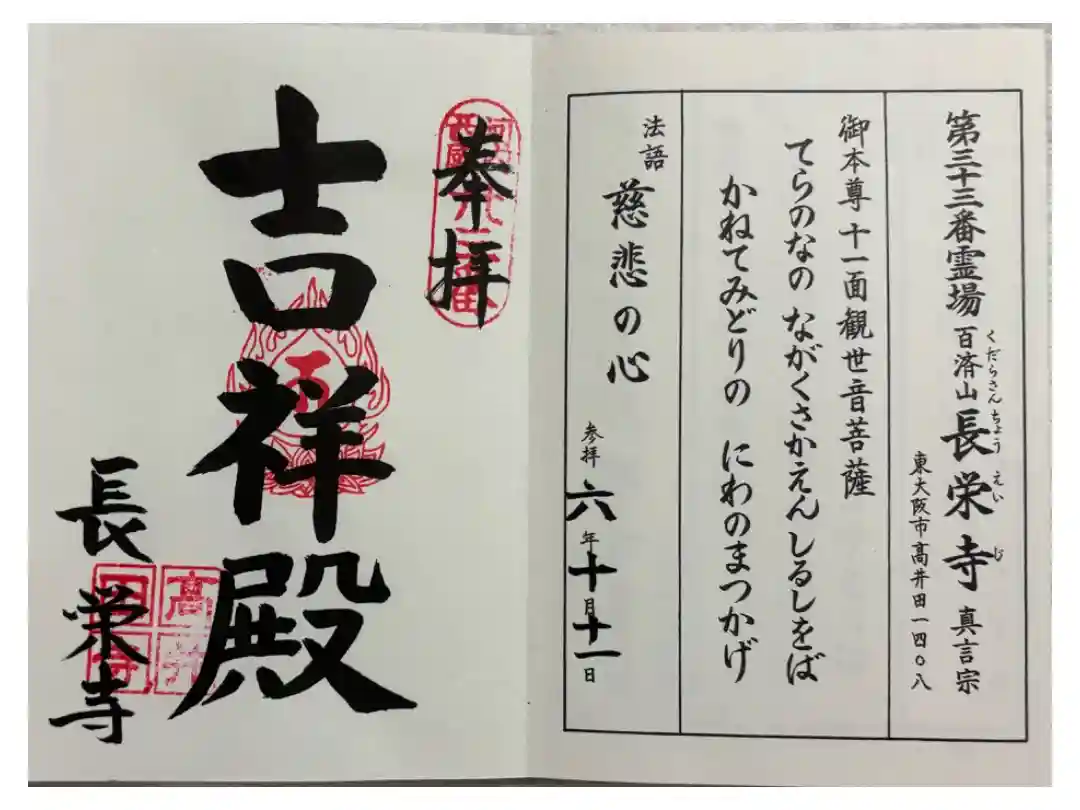 第三十三番霊場 百済山 長栄寺 真言宗
くだらさん ちょう えい じ
東大阪市高井田一四〇八
御本尊 十一面観世音菩薩
てらのなの ながくさかえんしるしをば
かねてみどりの にわのまつかげ
法語 慈悲の心
参拝 六年十月十一日
奉拝
吉祥殿
長栄寺